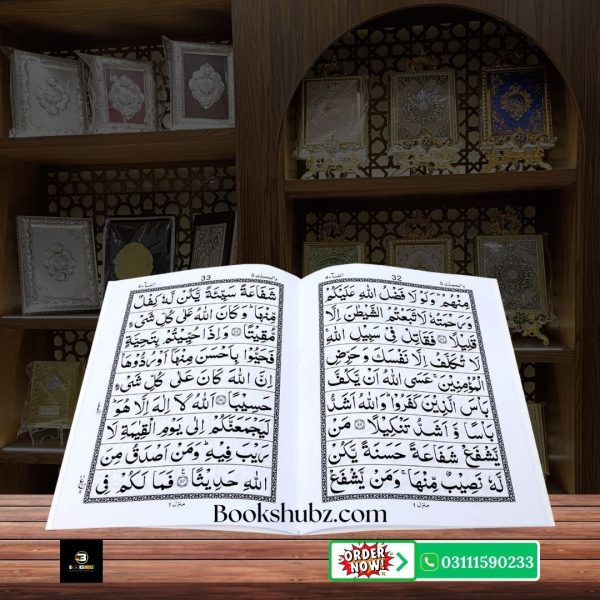 والمحصنت 5 32 النسآء ٤
مِنْهُمْ ؕ وَلَوْلَا فَضْلُ اللّٰهِ عَلَيْكُمْ
وَرَحْمَتُهٗ لَاتَّبَعْتُمُ الشَّيْطٰنَ اِلَّا
قَلِيْلًا ﴿٨٣﴾ فَقَاتِلْ فِيْ سَبِيْلِ اللّٰهِ ۚ
لَا تُكَلَّفُ اِلَّا نَفْسَكَ وَحَرِّضِ
الْمُؤْمِنِيْنَ ۚ عَسَى اللّٰهُ اَنْ يَّكُفَّ
بَاْسَ الَّذِيْنَ كَفَرُوْا ؕ وَاللّٰهُ اَشَدُّ
بَاْسًا وَّاَشَدُّ تَنْكِيْلًا ﴿٨٤﴾ مَنْ
يَّشْفَعْ شَفَاعَةً حَسَنَةً يَّكُنْ
لَّهٗ نَصِيْبٌ مِّنْهَا ۚ وَمَنْ يَّشْفَعْ
منزل ١
والمحصنت 5 33 النسآء ٤
شَفَاعَةً سَيِّئَةً يَّكُنْ لَّهٗ كِفْلٌ
مِّنْهَا ؕ وَكَانَ اللّٰهُ عَلٰى كُلِّ شَيْءٍ
مُّقِيْتًا ﴿٨٥﴾ وَاِذَا حُيِّيْتُمْ بِتَحِيَّةٍ
فَحَيُّوْا بِاَحْسَنَ مِنْهَاۤ اَوْ رُدُّوْهَا ؕ
اِنَّ اللّٰهَ كَانَ عَلٰى كُلِّ شَيْءٍ
حَسِيْبًا ﴿٨٦﴾ اَللّٰهُ لَاۤ اِلٰهَ اِلَّا هُوَ ؕ
لَيَجْمَعَنَّكُمْ اِلٰى يَوْمِ الْقِيٰمَةِ لَا
رَيْبَ فِيْهِ ؕ وَمَنْ اَصْدَقُ مِنَ
اللّٰهِ حَدِيْثًا ﴿٨٧﴾ فَمَا لَكُمْ فِي
منزل ١
Bookshubz.com
ORDER
NOW!
03111590233